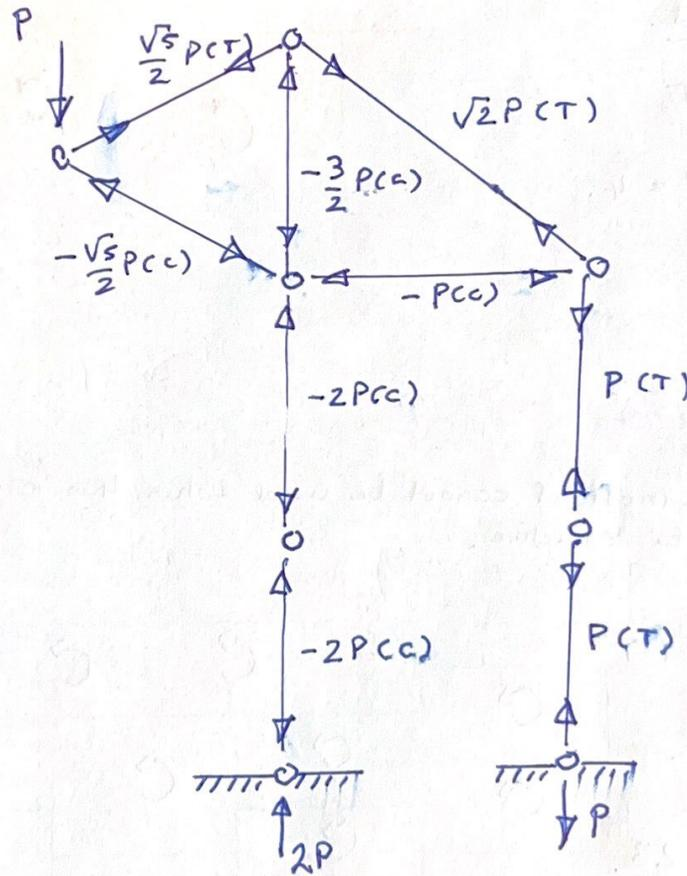 P
√5/2 P(T)
√2 P(T)
-3/2 P(c)
-√5/2 P(c)
-P(c)
-2P(c)
P(T)
-2P(c)
P(T)
P
2P